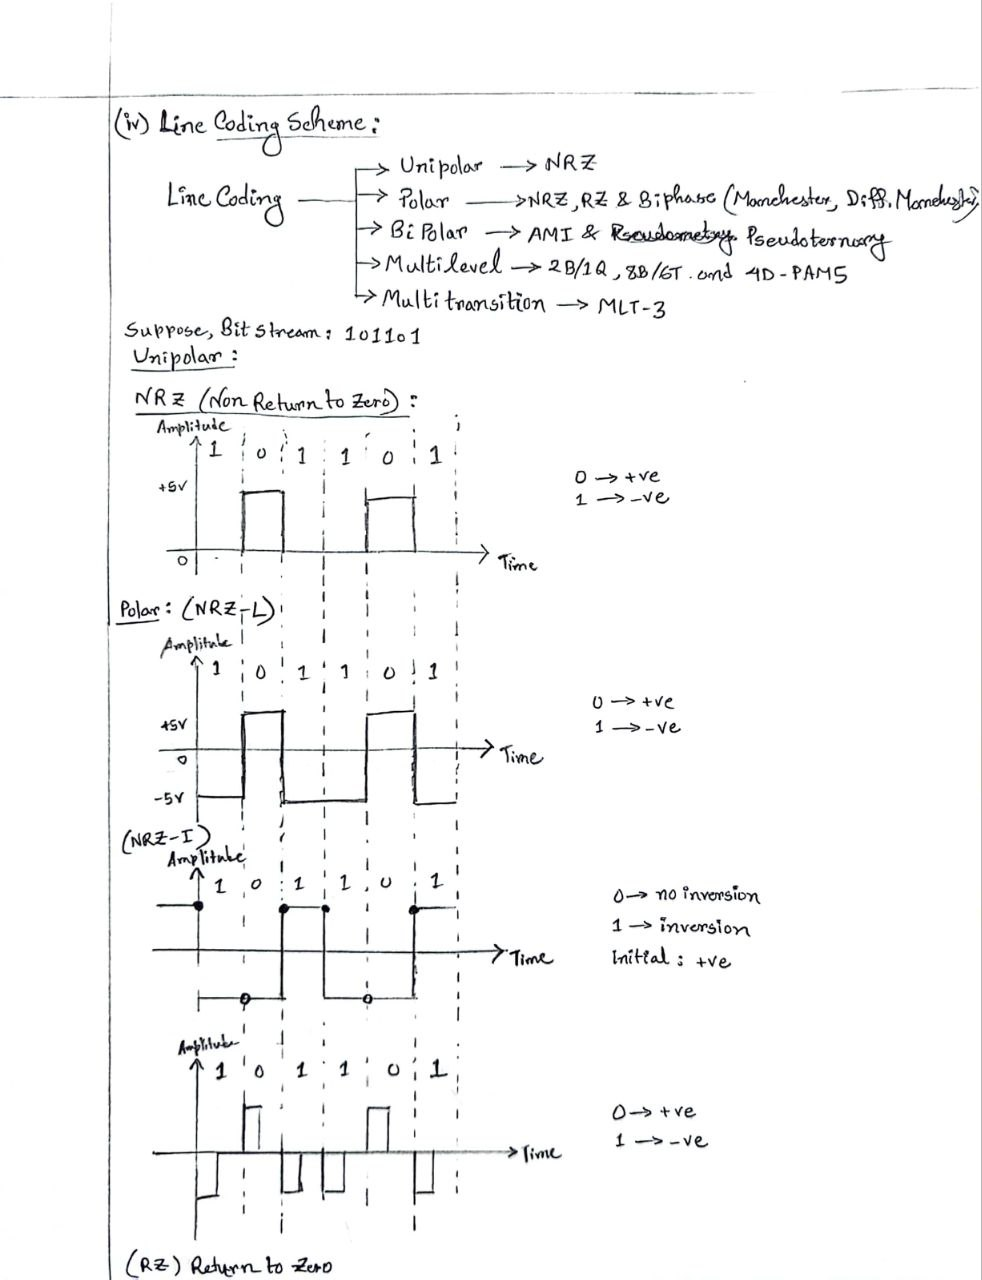 (iv) Line Coding Scheme:
Line Coding
→ Unipolar → NRZ
→ Polar → NRZ, RZ & Biphase (Manchester, Diff. Manchester)
→ BiPolar → AMI & Pseudoternary
→ Multilevel → 2B/1Q, 8B/6T. and 4D-PAM5
→ Multitransition → MLT-3
Suppose, Bit stream: 101101
Unipolar:
NRZ (Non Return to Zero):
Amplitude
1 0 1 1 0 1
+5V
0
Time
0 → +ve
1 → -ve
Polar: (NRZ-L)
Amplitude
1 0 1 1 0 1
+5V
0
-5V
Time
0 → +ve
1 → -ve
(NRZ-I)
Amplitude
1 0 1 1 0 1
Time
0 → no inversion
1 → inversion
Initial: +ve
Amplitude
1 0 1 1 0 1
Time
0 → +ve
1 → -ve
(RZ) Return to Zero